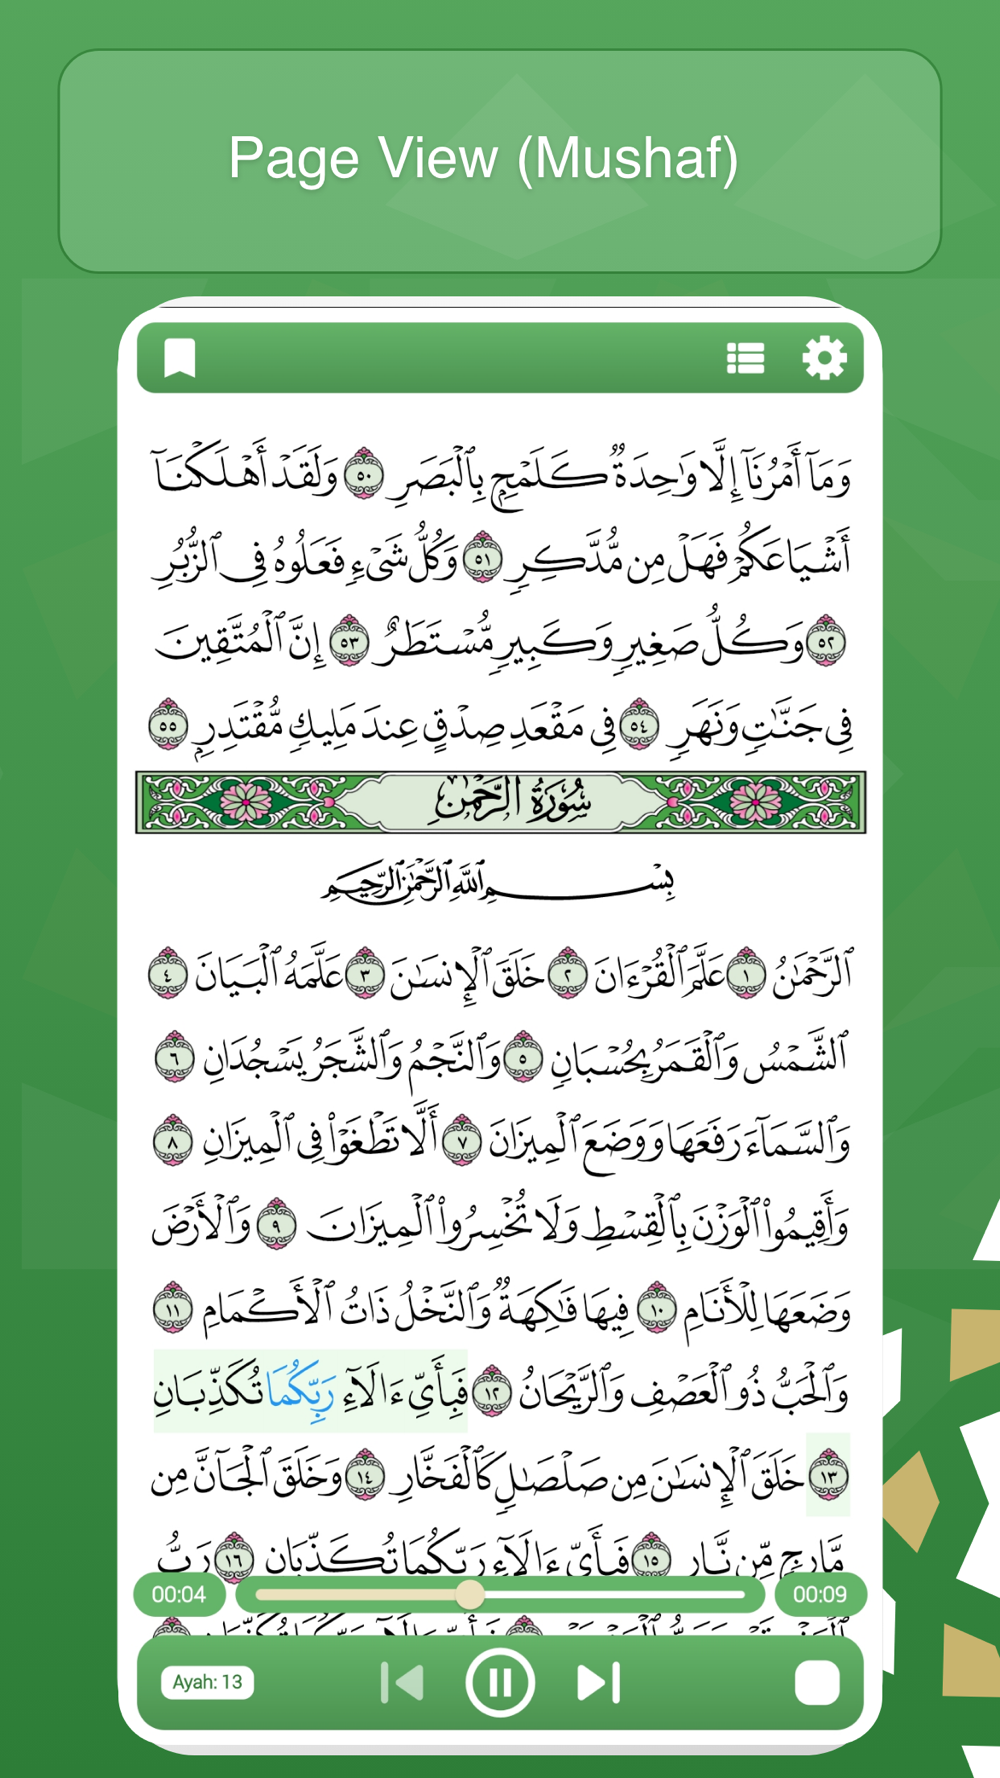 Page View (Mushaf)
وَمَآ أَمْرُنَآ إِلَّا وَٰحِدَةٌ كَلَمْحٍۭ بِٱلْبَصَرِ ٥٠ وَلَقَدْ أَهْلَكْنَآ
أَشْيَاعَكُمْ فَهَلْ مِن مُّدَّكِرٍ ٥١ وَكُلُّ شَىْءٍ فَعَلُوهُ فِى ٱلزُّبُرِ
٥٢ وَكُلُّ صَغِيرٍ وَكَبِيرٍ مُّسْتَطَرٌ ٥٣ إِنَّ ٱلْمُتَّقِينَ
فِى جَنَّٰتٍ وَنَهَرٍ ٥٤ فِى مَقْعَدِ صِدْقٍ عِندَ مَلِيكٍ مُّقْتَدِرٍۭ ٥٥
سُورَةُ الرَّحْمَٰنِ
بِسْمِ ٱللَّهِ ٱلرَّحْمَٰنِ ٱلرَّحِيمِ
ٱلرَّحْمَٰنُ ١ عَلَّمَ ٱلْقُرْءَانَ ٢ خَلَقَ ٱلْإِنسَٰنَ ٣ عَلَّمَهُ ٱلْبَيَانَ ٤
ٱلشَّمْسُ وَٱلْقَمَرُ بِحُسْبَانٍ ٥ وَٱلنَّجْمُ وَٱلشَّجَرُ يَسْجُدَانِ ٦
وَٱلسَّمَآءَ رَفَعَهَا وَوَضَعَ ٱلْمِيزَانَ ٧ أَلَّا تَطْغَوْا۟ فِى ٱلْمِيزَانِ ٨
وَأَقِيمُوا۟ ٱلْوَزْنَ بِٱلْقِسْطِ وَلَا تُخْسِرُوا۟ ٱلْمِيزَانَ ٩ وَٱلْأَرْضَ
وَضَعَهَا لِلْأَنَامِ ١٠ فِيهَا فَٰكِهَةٌ وَٱلنَّخْلُ ذَاتُ ٱلْأَكْمَامِ ١١
وَٱلْحَبُّ ذُو ٱلْعَصْفِ وَٱلرَّيْحَانُ ١٢ فَبِأَىِّ ءَالَآءِ رَبِّكُمَا تُكَذِّبَانِ
١٣ خَلَقَ ٱلْإِنسَٰنَ مِن صَلْصَٰلٍ كَٱلْفَخَّارِ ١٤ وَخَلَقَ ٱلْجَآنَّ مِن
مَّارِجٍ مِّن نَّارٍ ١٥ فَبِأَىِّ ءَالَآءِ رَبِّكُمَا تُكَذِّبَانِ ١٦ رَبُّ
00:04
00:09
Ayah: 13